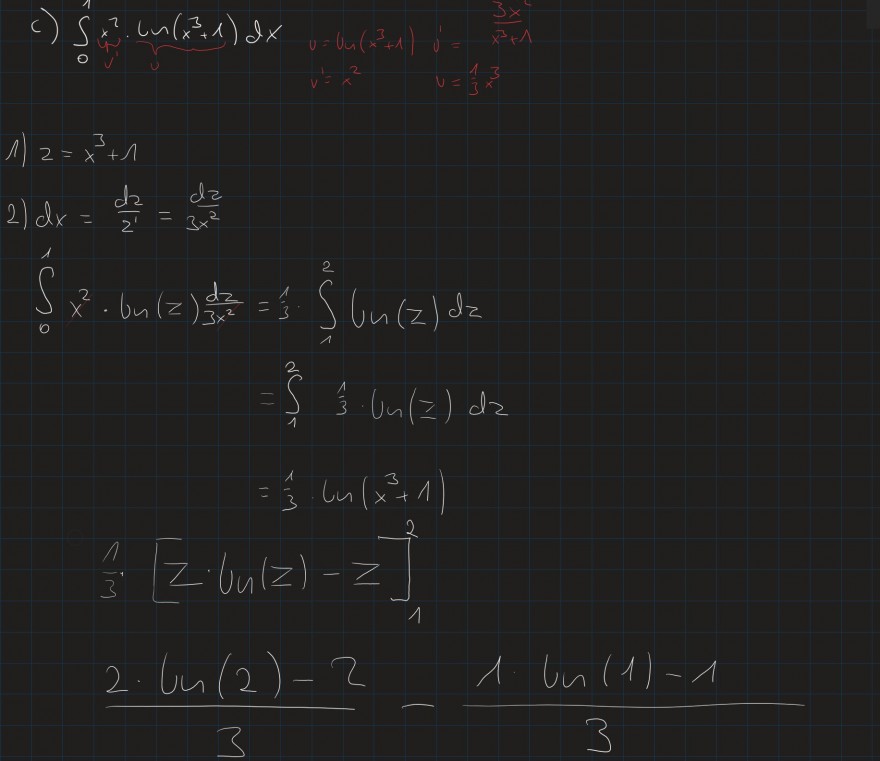 c) ∫₀¹ x² · ln(x³+1) dx
v' u
u = ln(x³+1) u' = 3x²/(x³+1)
v' = x² v = 1/3 x³
1) z = x³+1
2) dx = dz/z' = dz/3x²
∫₀¹ x² · ln(z) dz/3x² = 1/3 · ∫₁² ln(z) dz
= ∫₁² 1/3 · ln(z) dz
= 1/3 · ln(x³+1)
1/3 · [z · ln(z) − z]₁²
(2 · ln(2) − 2)/3 − (1 · ln(1) − 1)/3